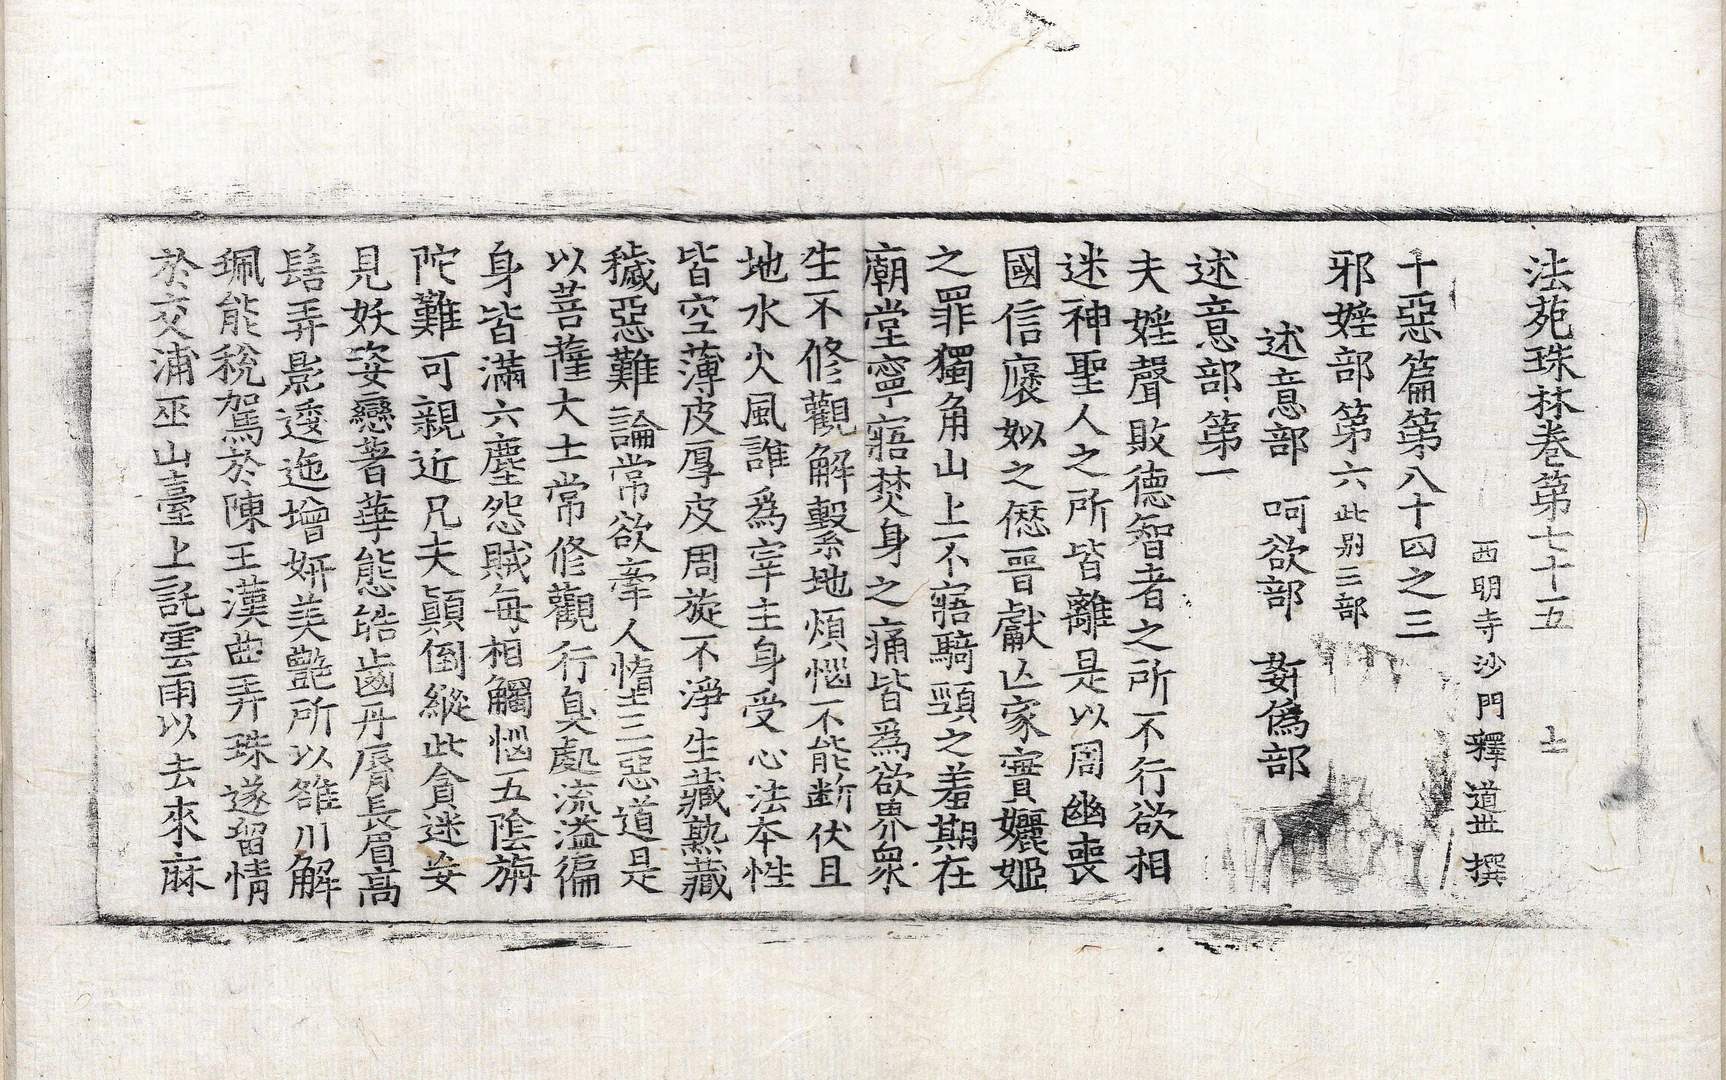 法苑珠林卷第七十五　上
西明寺沙門釋道世撰
十惡篇第八十四之三
邪婬部第六此別三部
述意部　呵欲部　姧偽部
述意部第一
夫婬聲敗德智者之所不行欲相
迷神聖人之所皆離是以周幽喪
國信褒姒之愆晉獻亡家實孋姬
之罪獨角山上不寤騎頸之羞期在
廟堂寧寤焚身之痛皆爲欲界衆
生不修觀解繫地煩惱不能斷伏且
地水火風誰爲宰主身受心法本性
皆空薄皮厚皮周旋不淨生藏熟藏
穢惡難論常欲牽人墮三惡道是
以菩薩大士常修觀行臭處流溢徧
身皆滿六塵怨賊每相觸惱五陰旃
陀難可親近凡夫顛倒縱此貪迷妄
見妖姿戀著華態皓齒丹脣長眉高
髻弄影逶迤增妍美艷所以雒川解
珮能稅駕於陳王漢曲弄珠遂留情
於交浦巫山臺上託雲雨以去來麻